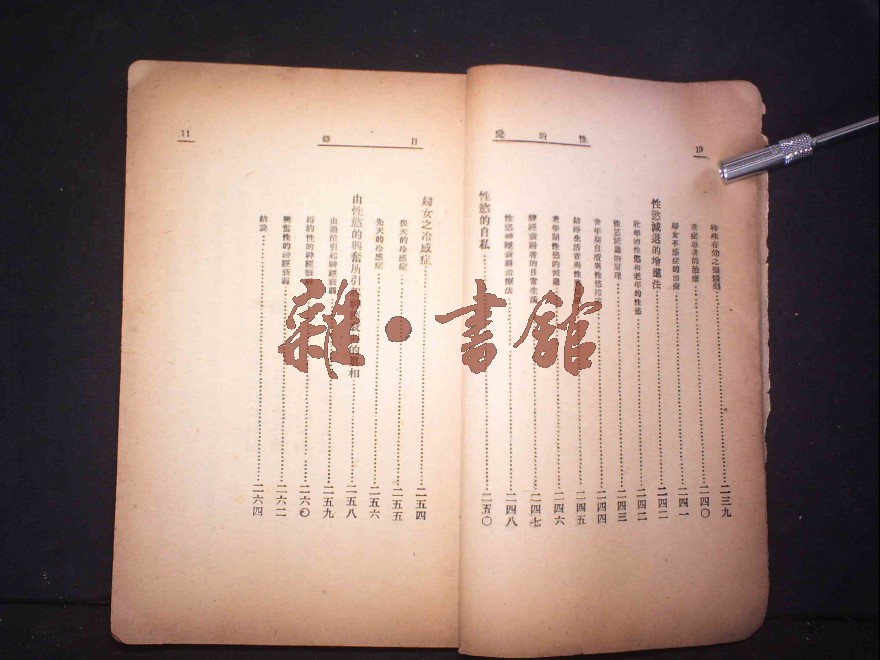 性的愛
10
特殊有効之強精劑……二三九
重症患者的治療……二四〇
婦女不感症的治療……二四一
性慾減退的增進法……二四二
壯年的性慾和老年的性慾……二四二
性慾減退的原理……二四三
青年期自瀆與性慾……二四四
結婚生活者與性……二四五
老年期性慾的減退……二四六
神經衰弱者的日常生活……二四七
性慾神經衰弱治療法……二四八
性慾的自私……二五〇
目錄
11
婦女之冷感症……二五四
後天的冷感症……二五五
先天的冷感症……二五六
由性慾的興奮所引起神經衰弱的真相……二五八
由過淫引起神經衰弱……二五九
局的性的神經衰弱……二六〇
興奮性的神經衰弱……二六二
結論……二六四
雜·書館